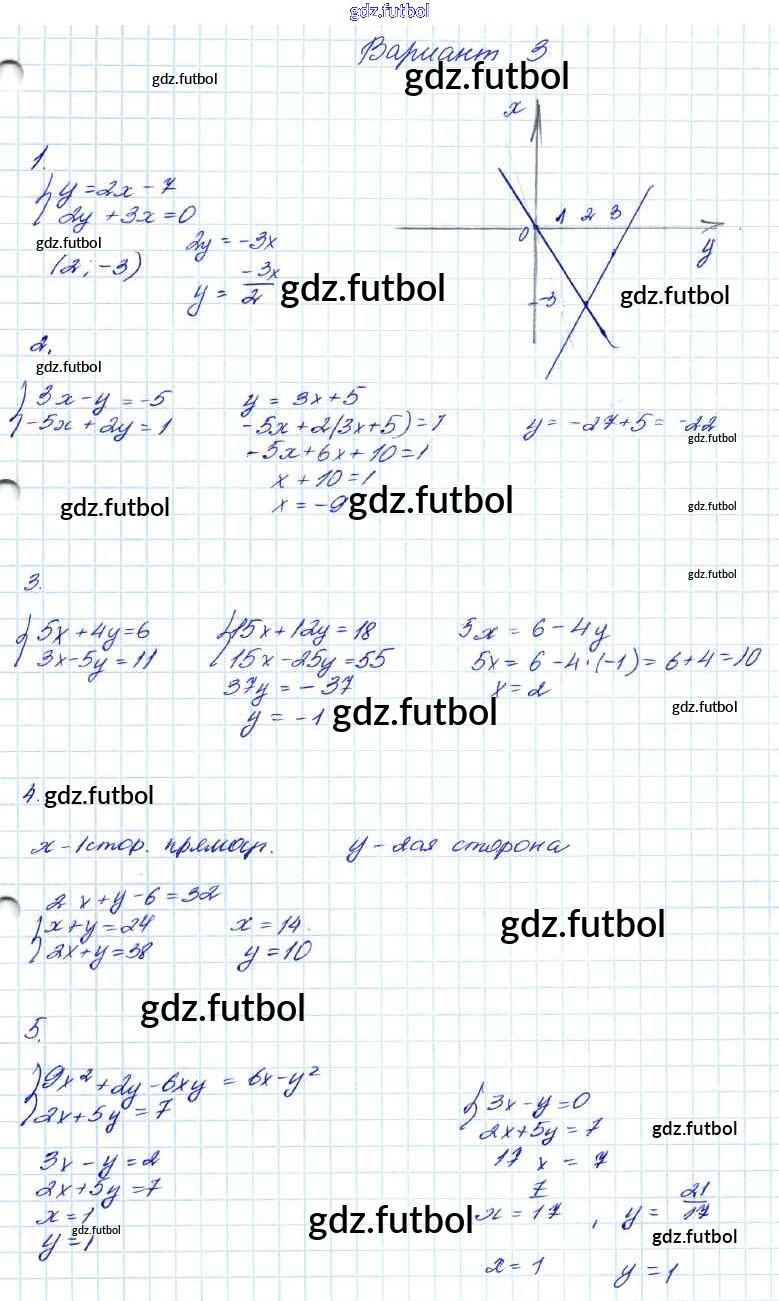 gdz.futbol
Вариант 3
gdz.futbol
gdz.futbol
x
1.
y = 2x - 7
2y + 3x = 0
0 1 2 3
y
gdz.futbol
(2; -3)
2y = -3x
y = -3x/2
gdz.futbol
-3
gdz.futbol
2.
gdz.futbol
3x - y = -5
-5x + 2y = 1
y = 3x + 5
-5x + 2(3x + 5) = 1
-5x + 6x + 10 = 1
x + 10 = 1
x = -9
y = -27 + 5 = -22
gdz.futbol
gdz.futbol
gdz.futbol
gdz.futbol
gdz.futbol
3.
5x + 4y = 6
3x - 5y = 11
15x + 12y = 18
15x - 25y = 55
37y = -37
y = -1
5x = 6 - 4y
5x = 6 - 4·(-1) = 6 + 4 = 10
x = 2
gdz.futbol
gdz.futbol
4.
gdz.futbol
x - 1 стор. прямоуг. y - 2ая сторона
2x + y - 6 = 32
x + y = 24
2x + y = 38
x = 14
y = 10
gdz.futbol
gdz.futbol
5.
9x² + 2y - 6xy = 6x - y²
2x + 5y = 7
3x - y = 2
2x + 5y = 7
x = 1
y = 1
gdz.futbol
gdz.futbol
3x - y = 0
2x + 5y = 7
17x = 7
x = 7/17, y = 21/17
x = 1 y = 1
gdz.futbol
gdz.futbol